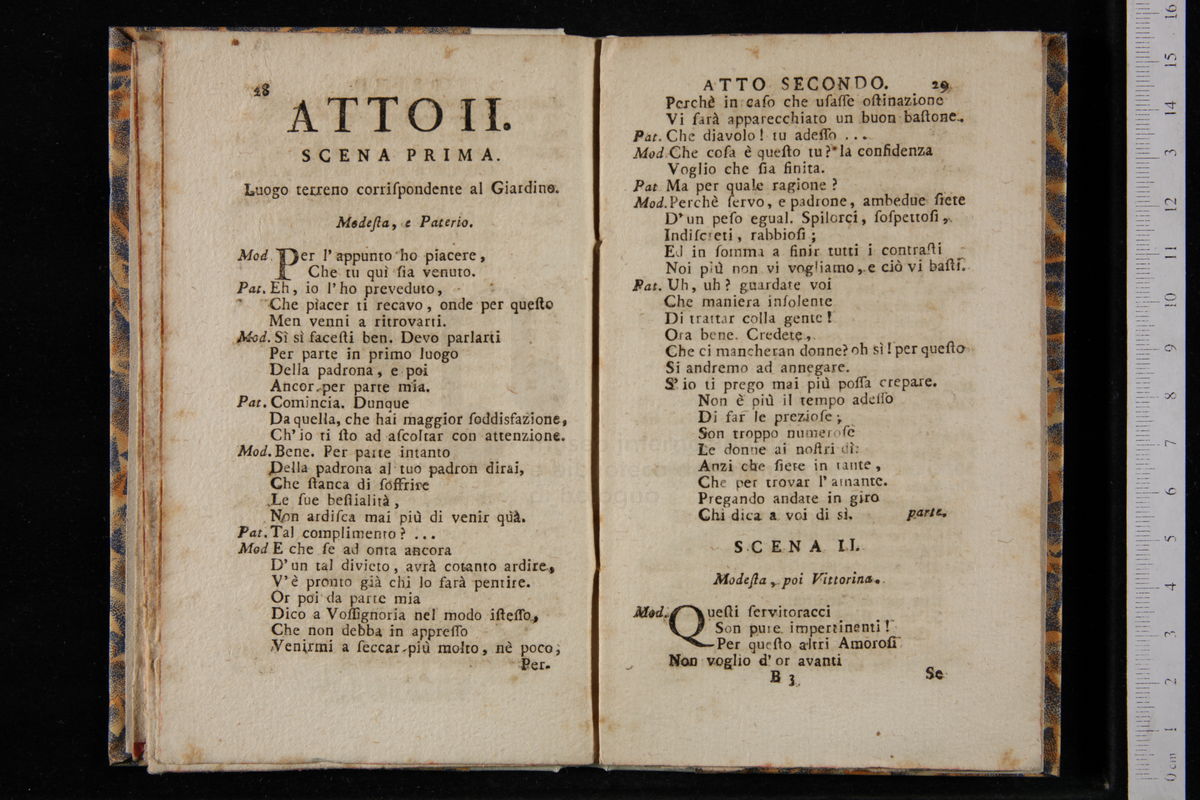 28
ATTO II.
SCENA PRIMA.
Luogo terreno corriſpondente al Giardino.
Modeſta, e Paterio.
Mod Per l'appunto ho piacere,
Che tu quì ſia venuto.
Pat. Eh, io l'ho preveduto,
Che piacer ti recavo, onde per queſto
Men venni a ritrovarti.
Mod. Sì sì faceſti ben. Devo parlarti
Per parte in primo luogo
Della padrona, e poi
Ancor per parte mia.
Pat. Comincia. Dunque
Da quella, che hai maggior ſoddisfazione,
Ch'io ti ſto ad aſcoltar con attenzione.
Mod. Bene. Per parte intanto
Della padrona al tuo padron dirai,
Che ſtanca di ſoffrire
Le ſue beſtialità,
Non ardiſca mai più di venir quà.
Pat. Tal complimento? ...
Mod E che ſe ad onta ancora
D'un tal divieto, avrà cotanto ardire,
V'è pronto già chi lo farà pentire.
Or poi da parte mia
Dico a Voſſignoria nel modo iſteſſo,
Che non debba in appreſſo
Venirmi a ſeccar più molto, nè poco;
Per-
ATTO SECONDO. 29
Perchè in caſo che uſaſſe oſtinazione
Vi ſarà apparecchiato un buon baſtone.
Pat. Che diavolo! tu adeſſo ...
Mod Che coſa è queſto tu? la confidenza
Voglio che ſia finita.
Pat Ma per quale ragione?
Mod. Perchè ſervo, e padrone, ambedue ſiete
D'un peſo egual. Spilorci, ſoſpettoſi,
Indiſcreti, rabbioſi;
Ed in ſomma a finir tutti i contraſti
Noi più non vi vogliamo, e ciò vi baſti.
Pat. Uh, uh? guardate voi
Che maniera inſolente
Di trattar colla gente!
Ora bene. Credete,
Che ci mancheran donne? oh sì! per queſto
Si andremo ad annegare.
S'io ti prego mai più poſſa crepare.
Non è più il tempo adeſſo
Di far le prezioſe;
Son troppo numeroſe
Le donne ai noſtri dì:
Anzi che ſiete in tante,
Che per trovar l'amante.
Pregando andate in giro
Chi dica a voi di sì. parte.
SCENA II.
Modeſta, poi Vittorina.
Mod. Queſti ſervitoracci
Son pure impertinenti!
Per queſto altri Amoroſi
Non voglio d'or avanti
B 3 Se